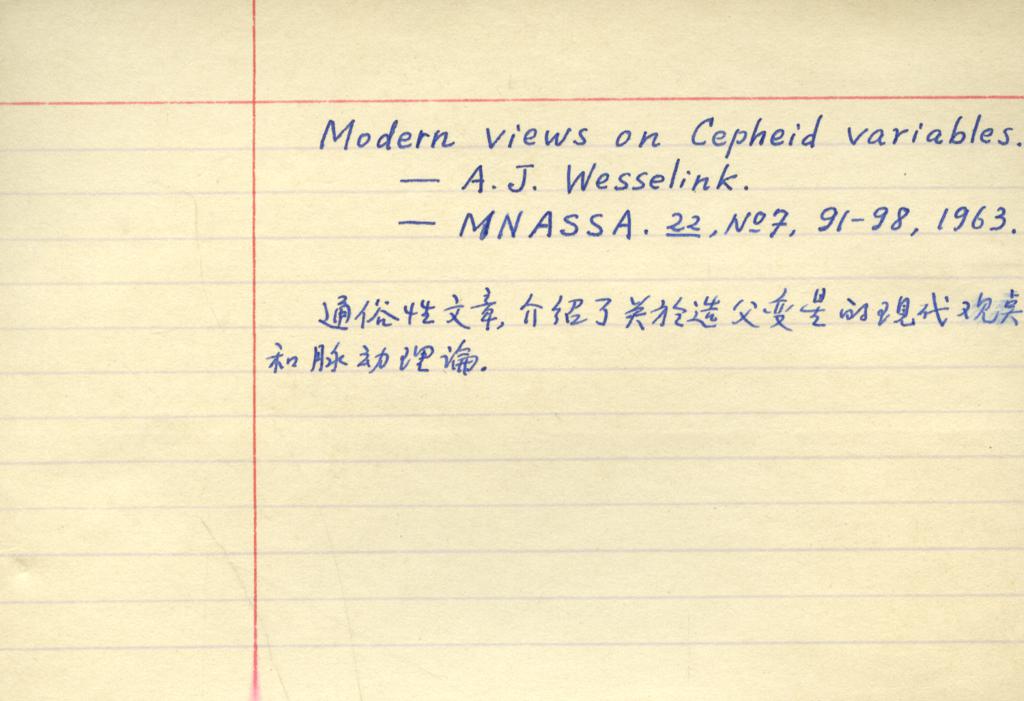 Modern views on Cepheid variables.
— A. J. Wesselink.
— MNASSA. 22, Nº7, 91-98, 1963.
通俗性文章, 介绍了关於造父变星的现代观点
和脉动理论.